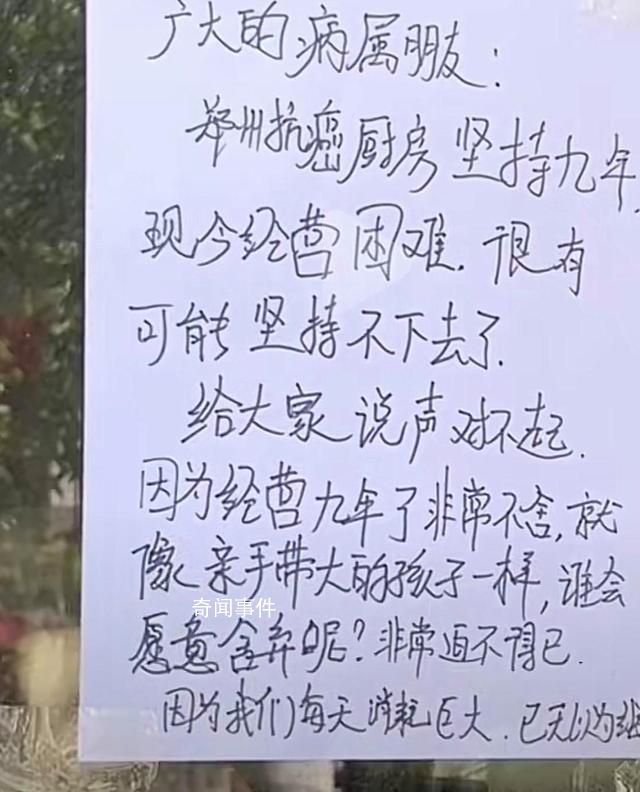 广大的病属朋友：
郑州抗癌厨房坚持九年，
现今经营困难.很有
可能坚持不下去了.
给大家说声对不起.
因为经营九年了非常不舍,就
像亲手带大的孩子一样,谁会
奇闻事件
愿意舍弃呢?非常迫不得已.
因为我们每天消耗巨大.已无以为继